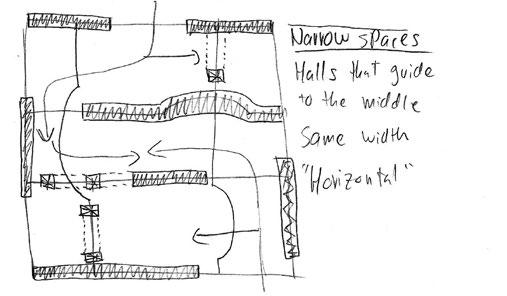 Narrow spaces
Halls that guide
to the middle
same width
"Horizontal"